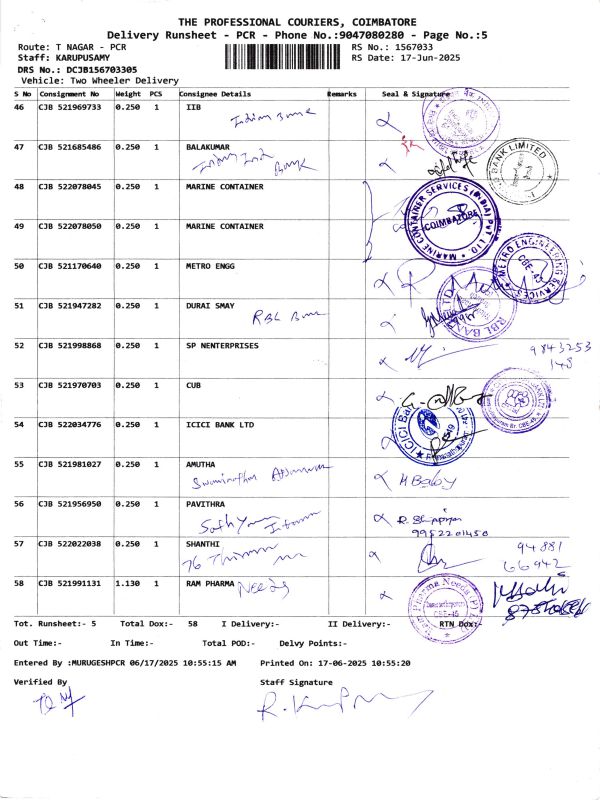 THE PROFESSIONAL COURIERS, COIMBATORE
Delivery Runsheet - PCR - Phone No.:9047080280 - Page No.:5
Route: T NAGAR - PCR RS No.: 1567033
Staff: KARUPUSAMY RS Date: 17-Jun-2025
DRS No.: DCJB156703305
Vehicle: Two Wheeler Delivery
S No Consignment No Weight PCS Consignee Details Remarks Seal & Signature
46 CJB 521969733 0.250 1 IIB
Indian Bank
47 CJB 521685486 0.250 1 BALAKUMAR
Bank
BANK LIMITED
48 CJB 522078045 0.250 1 MARINE CONTAINER
MARINE CONTAINER SERVICES (INDIA) PVT LTD
COIMBATORE
49 CJB 522078050 0.250 1 MARINE CONTAINER
50 CJB 521170640 0.250 1 METRO ENGG
METRO ENGINEERING SERVICES
CBE-43
51 CJB 521947282 0.250 1 DURAI SMAY
RBL Bank
RBL BANK LTD
52 CJB 521998868 0.250 1 SP NENTERPRISES
9843253
148
53 CJB 521970703 0.250 1 CUB
54 CJB 522034776 0.250 1 ICICI BANK LTD
ICICI Bank
55 CJB 521981027 0.250 1 AMUTHA
M Baby
56 CJB 521956950 0.250 1 PAVITHRA
9952201450
57 CJB 522022038 0.250 1 SHANTHI
94881
66942
58 CJB 521991131 1.130 1 RAM PHARMA Needs
Ram Pharma Needs (P)
CBE-45
Tot. Runsheet:- 5 Total Dox:- 58 I Delivery:- II Delivery:- RTN Dox:-
Out Time:- In Time:- Total POD:- Delvy Points:-
Entered By :MURUGESHPCR 06/17/2025 10:55:15 AM Printed On: 17-06-2025 10:55:20
Verified By Staff Signature